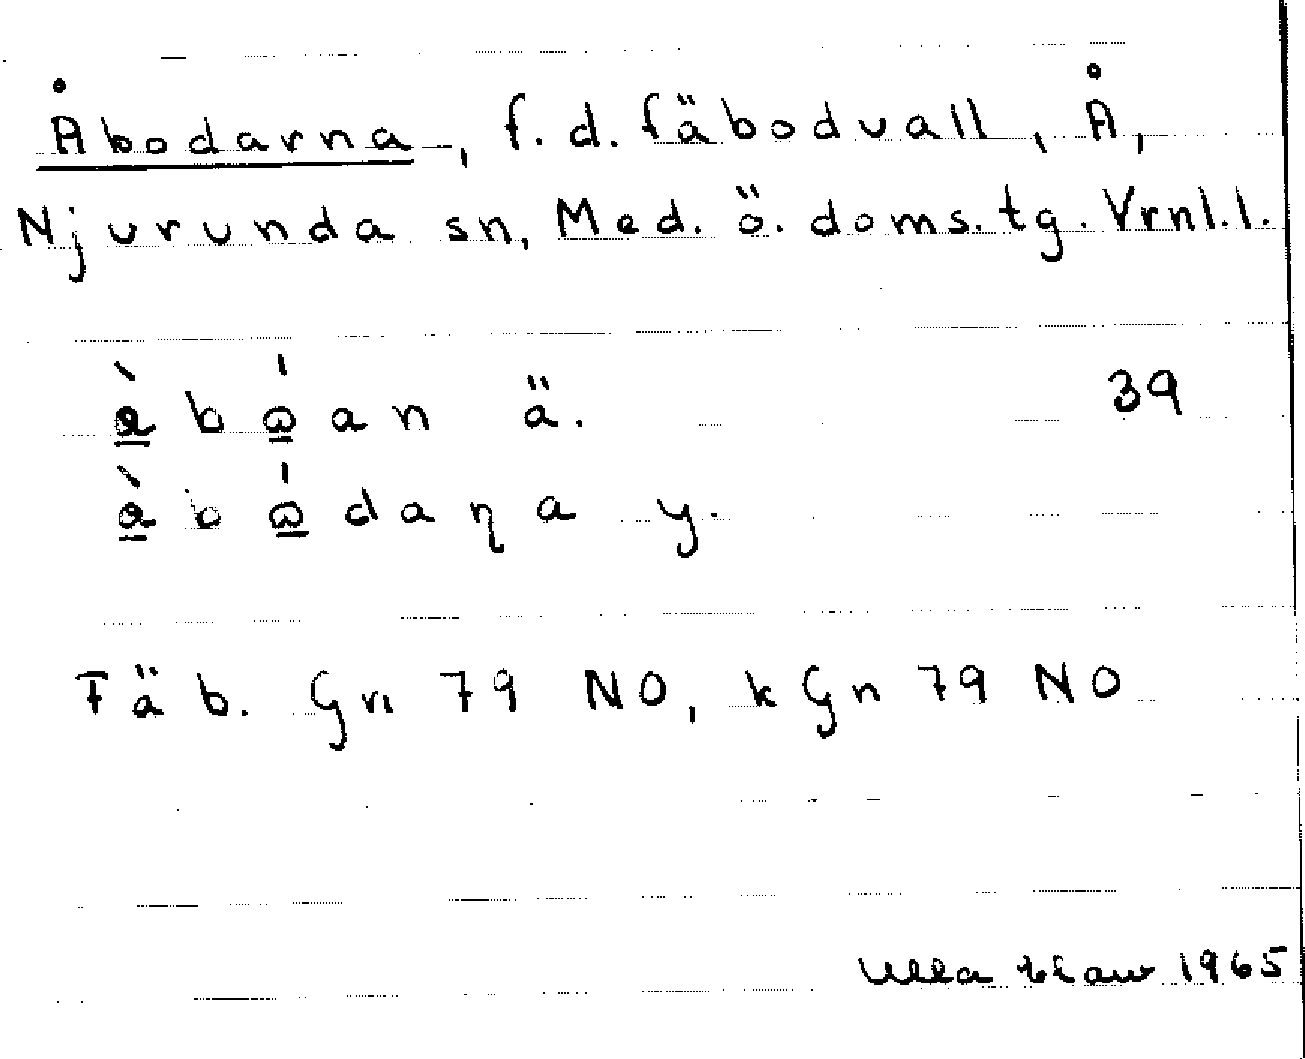 Åbodarna, f.d. fäbodvall, Å,
Njurunda sn, Med. ö. doms.tg. Vrnl.l.
39
y.
Fäb. Gn 79 NO, k Gn 79 NO
Ulla 1965